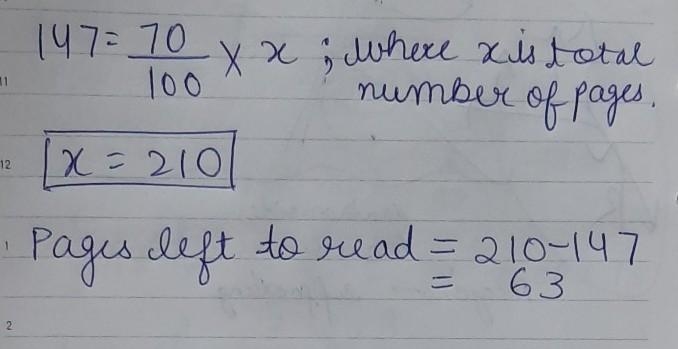 147 = 70/100 × x ; where x is total
number of pages.
x = 210
Pages left to read = 210-147
= 63
11
12
1
2